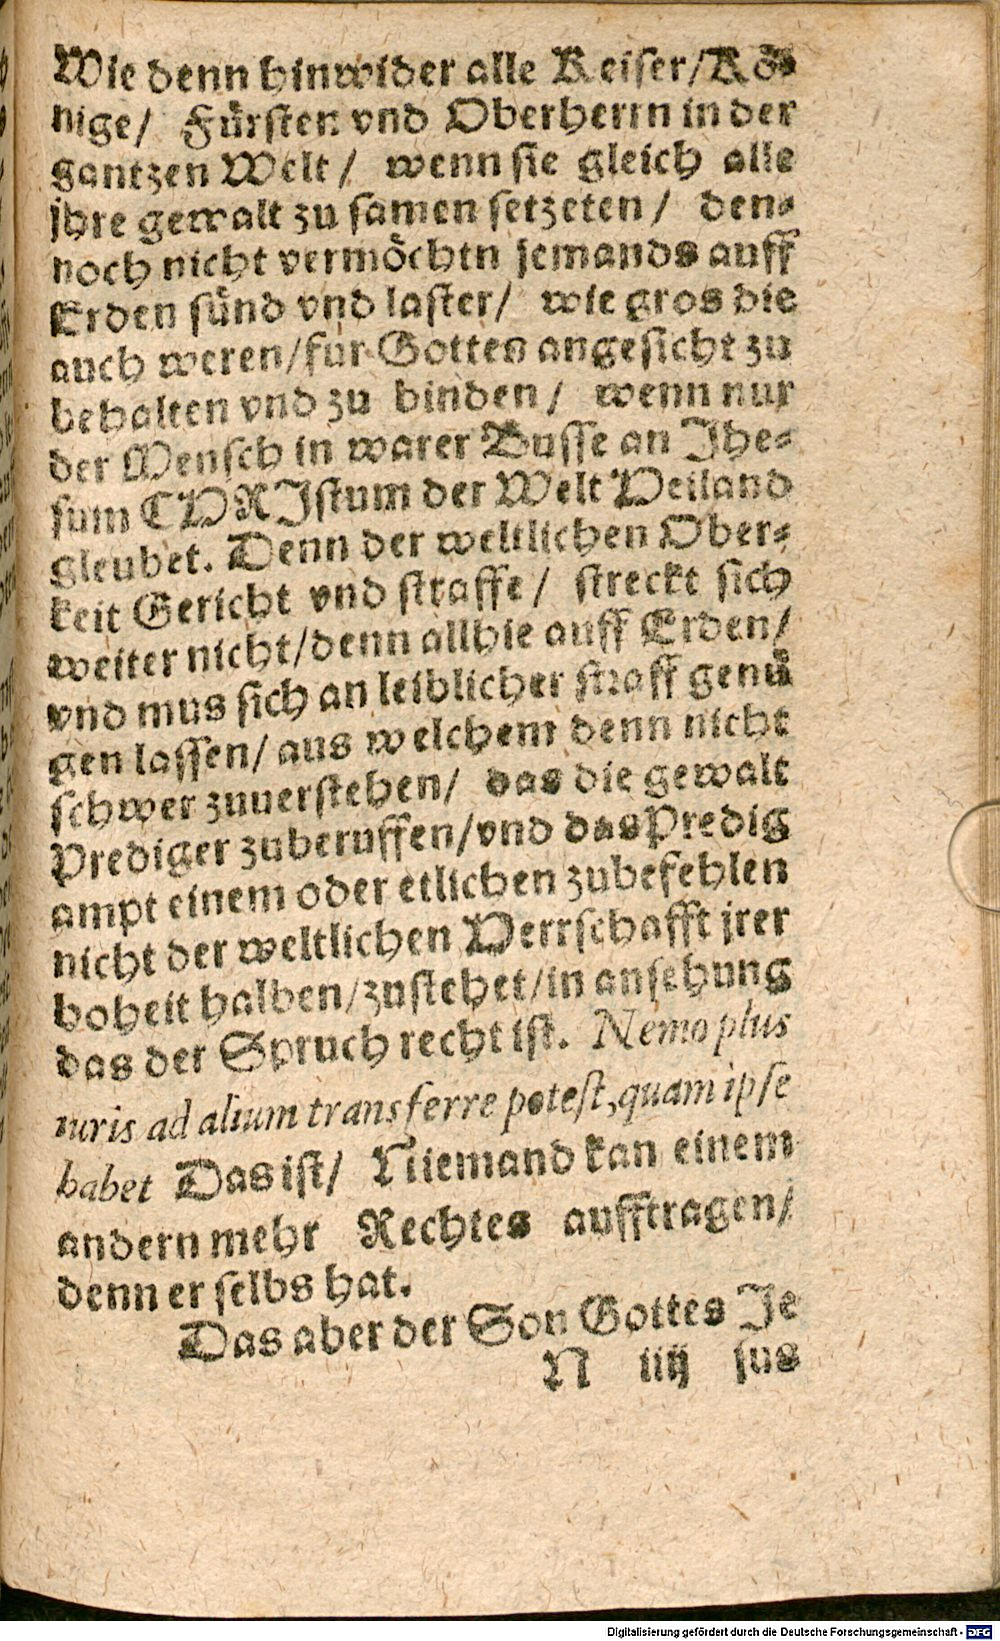 Wie denn hinwider alle Keiser/Kö-
nige/ Fürsten vnd Oberherrn in der
gantzen Welt/ wenn sie gleich alle
jhre gewalt zu samen setzeten/ den-
noch nicht vermöchtn jemands auff
Erden sünd vnd laster/ wie gros die
auch weren/für Gottes angesicht zu
behalten vnd zu binden/ wenn nur
der Mensch in warer Busse an Jhe-
sum CHRJstum der Welt Heiland
gleubet. Denn der weltlichen Ober-
keit Gericht vnd straffe/ streckt sich
weiter nicht/denn allhie auff Erden/
vnd mus sich an leiblicher straff genü
gen lassen/ aus welchem denn nicht
schwer zuuerstehen/ das die gewalt
Prediger zuberuffen/vnd das Predig
ampt einem oder etlichen zubefehlen
nicht der weltlichen Herrschafft jrer
hoheit halben/zustehet/in ansehung
das der Spruch recht ist. Nemo plus
iuris ad alium transferre potest, quam ipse
habet Das ist/ Niemand kan einem
andern mehr Rechtes aufftragen/
denn er selbs hat.
Das aber der Son Gottes Je
N iiij sus
Digitalisierung gefördert durch die Deutsche Forschungsgemeinschaft - DFG